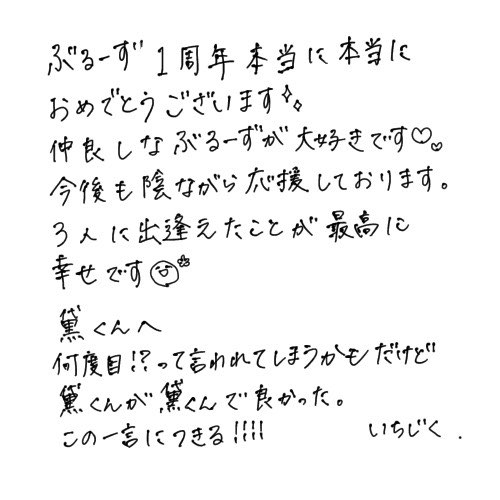 ぶるーず1周年本当に本当に
おめでとうございます
仲良しなぶるーずが大好きです♡
今後も陰ながら応援しております。
3人に出逢えたことが最高に
幸せです
黛くんへ
何度目!?って言われてしまうかもだけど
黛くんが黛くんで良かった。
この一言につきる!!!!
いちじく.